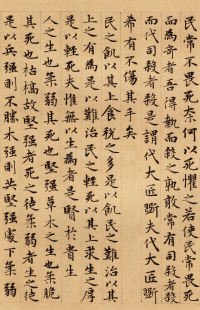 民常不畏死奈何以死懼之若使民常畏死
而為奇者吾得執而殺之孰敢常有司殺者殺
而代司殺者殺是謂代大匠斲夫代大匠斲
希有不傷其手矣
民之飢以其上食稅之多是以飢民之難治以其
上之有為是以難治民之輕死以其上求生之厚
是以輕死夫惟無以生為者是賢於貴生
人之生也柔弱其死也堅強草木之生也柔脆
其死也枯槁故堅強者死之徒柔弱者生之徒
是以兵強則不勝木強則共堅強處下柔弱